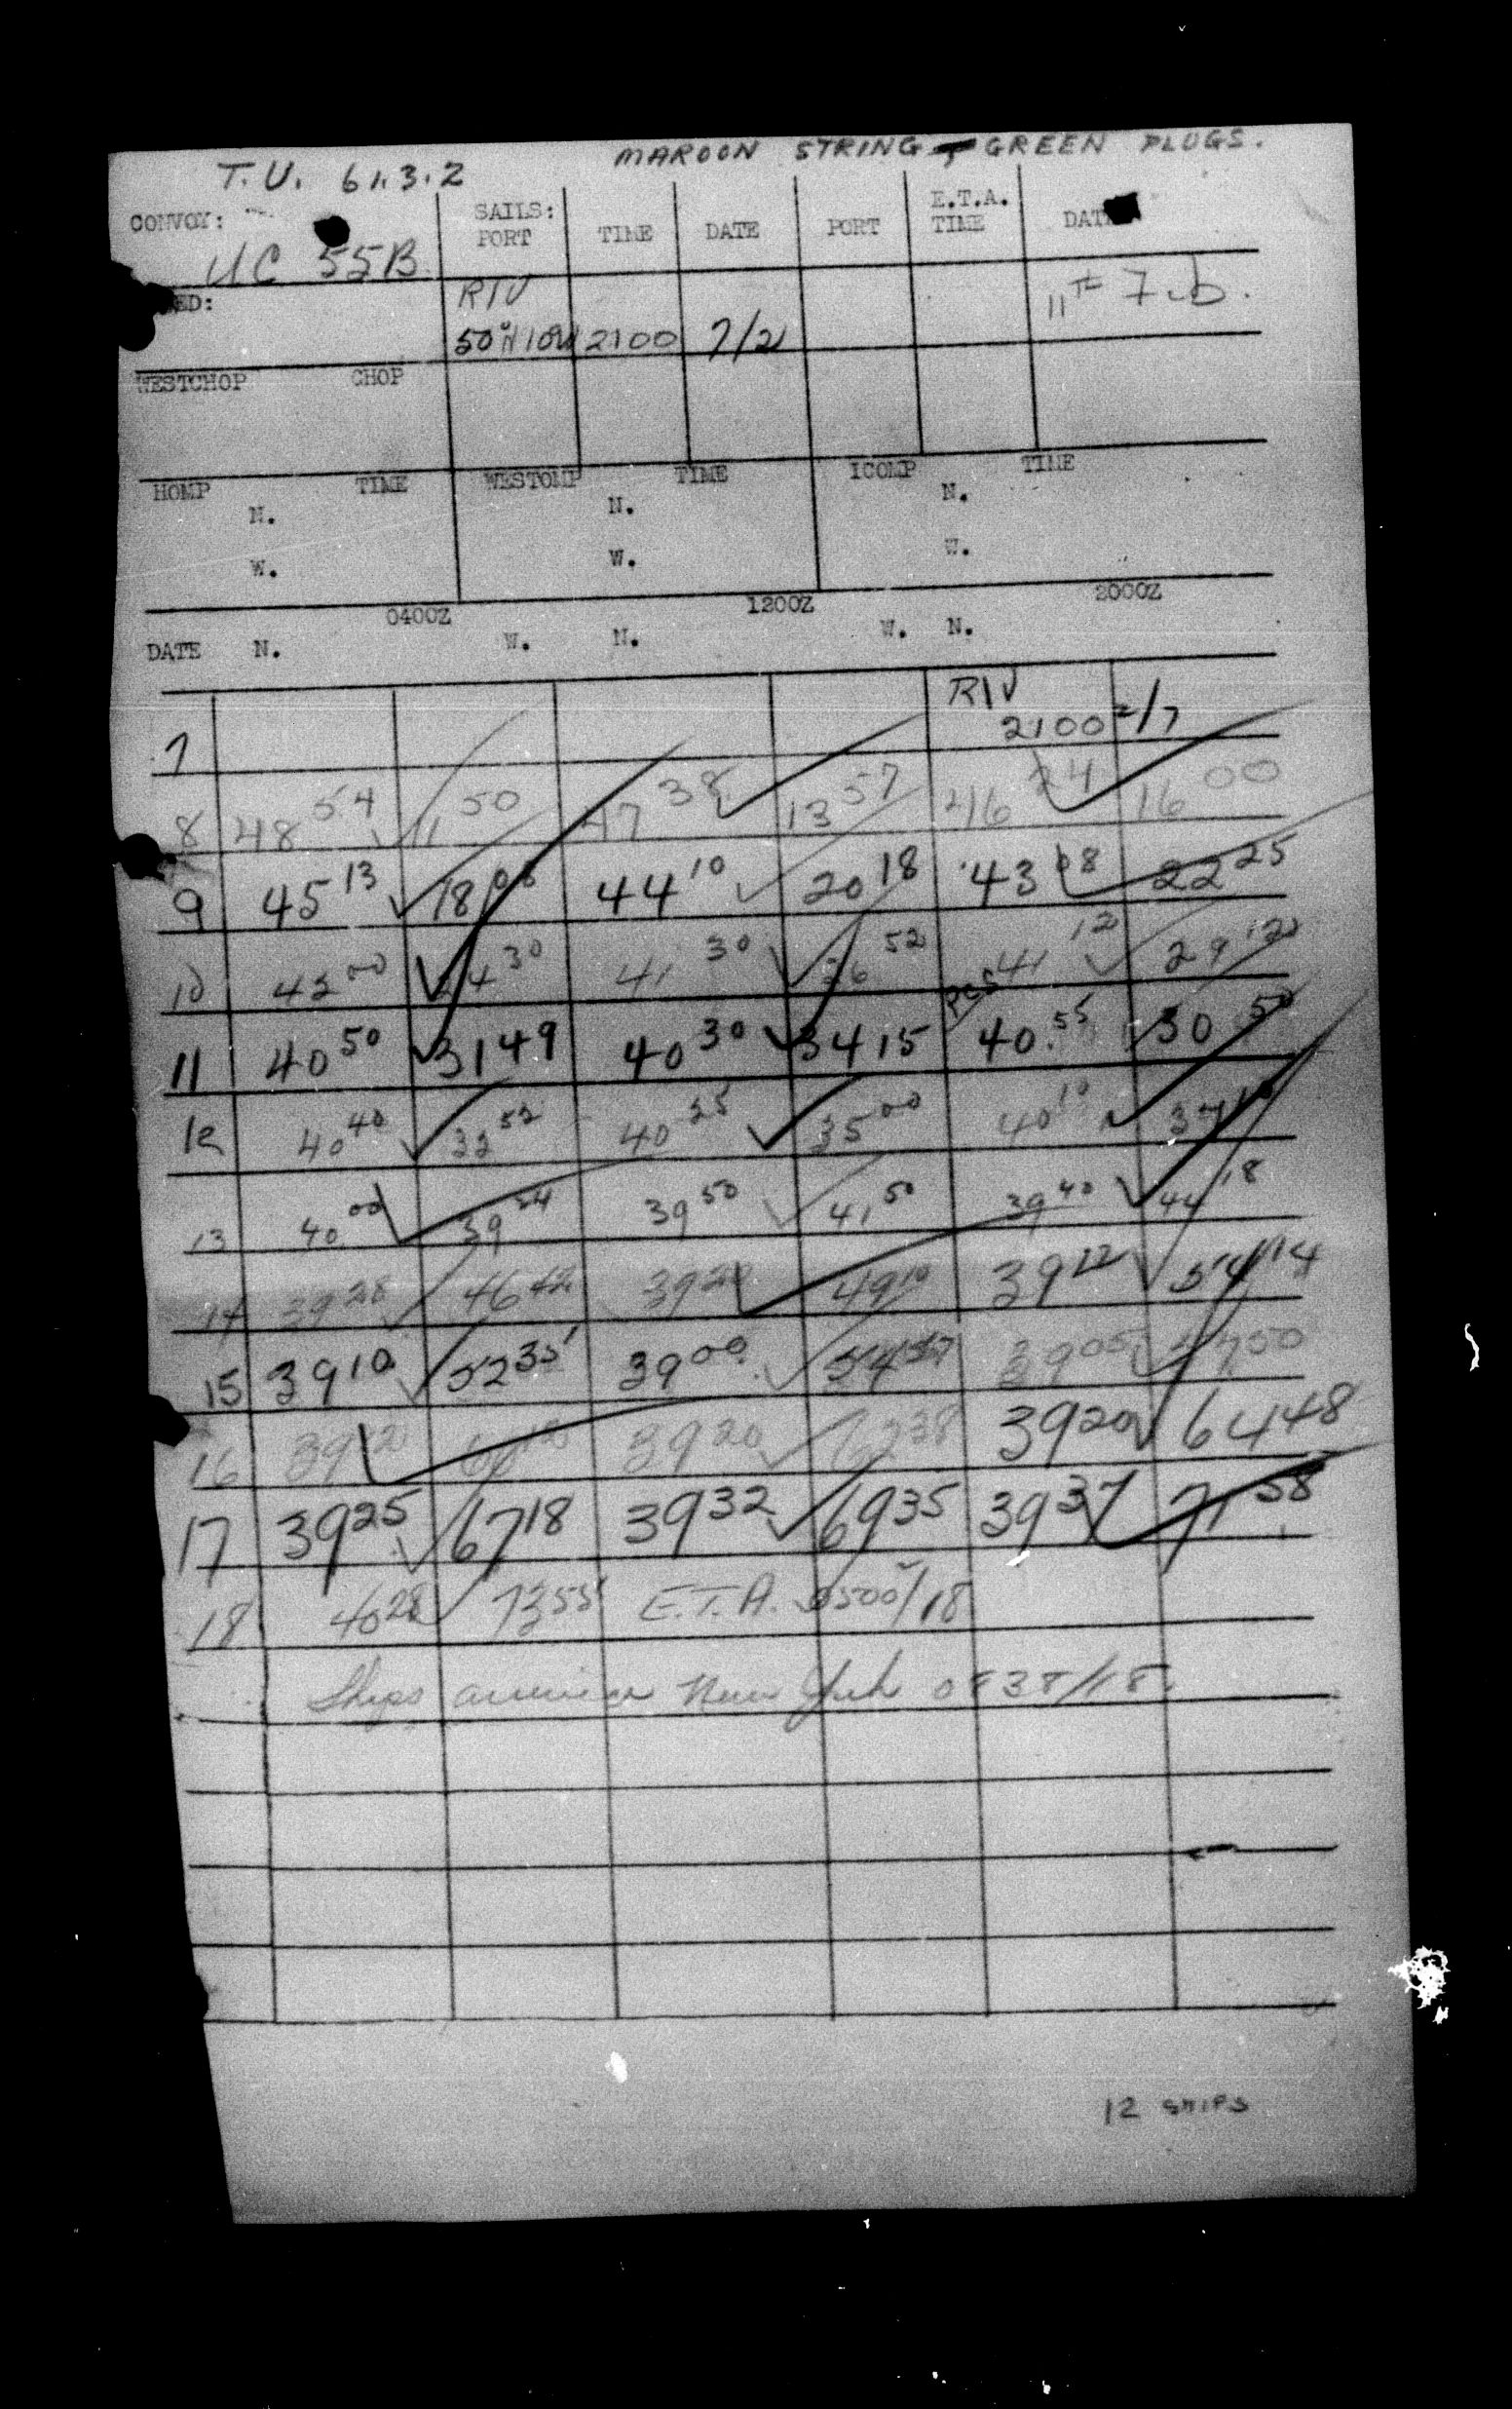 MAROON STRING GREEN PLUGS.
T.U. 61.3.2
CONVOY: SAILS: PORT TIME DATE PORT E.T.A. TIME DATE
UC 55B
ED: RIV 11th Feb.
50°N 10W 2100 7/2
WESTCHOP CHOP
HOMP TIME WESTOMP TIME ICOMP TIME
N. N. N.
W. W. W.
0400Z 1200Z 2000Z
DATE N. W. N. W. N.
7 RIV 2100 2/7
8 48 54 11 50 47 38 13 57 46 24 16 00
9 45 13 18 08 44 10 20 18 43 08 22 25
10 42 00 24 30 41 30 26 52 41 12 29 12
11 40 50 31 49 40 30 34 15 pos 40.55 30 50
12 40 40 33 52 40 25 35 00 40 10 37 10
13 40 00 39 24 39 50 41 50 39 40 44 18
14 39 28 46 42 39 20 49 10 39 12 51 14
15 39 10 52 35 39 00 54 57 39 05 57 50
16 39 20 60 10 39 20 62 38 39 20 64 48
17 39 25 67 18 39 32 69 35 39 37 71 58
18 40 28 73 55 E.T.A. 0500/18
Ships New York 0838/18
12 SHIPS